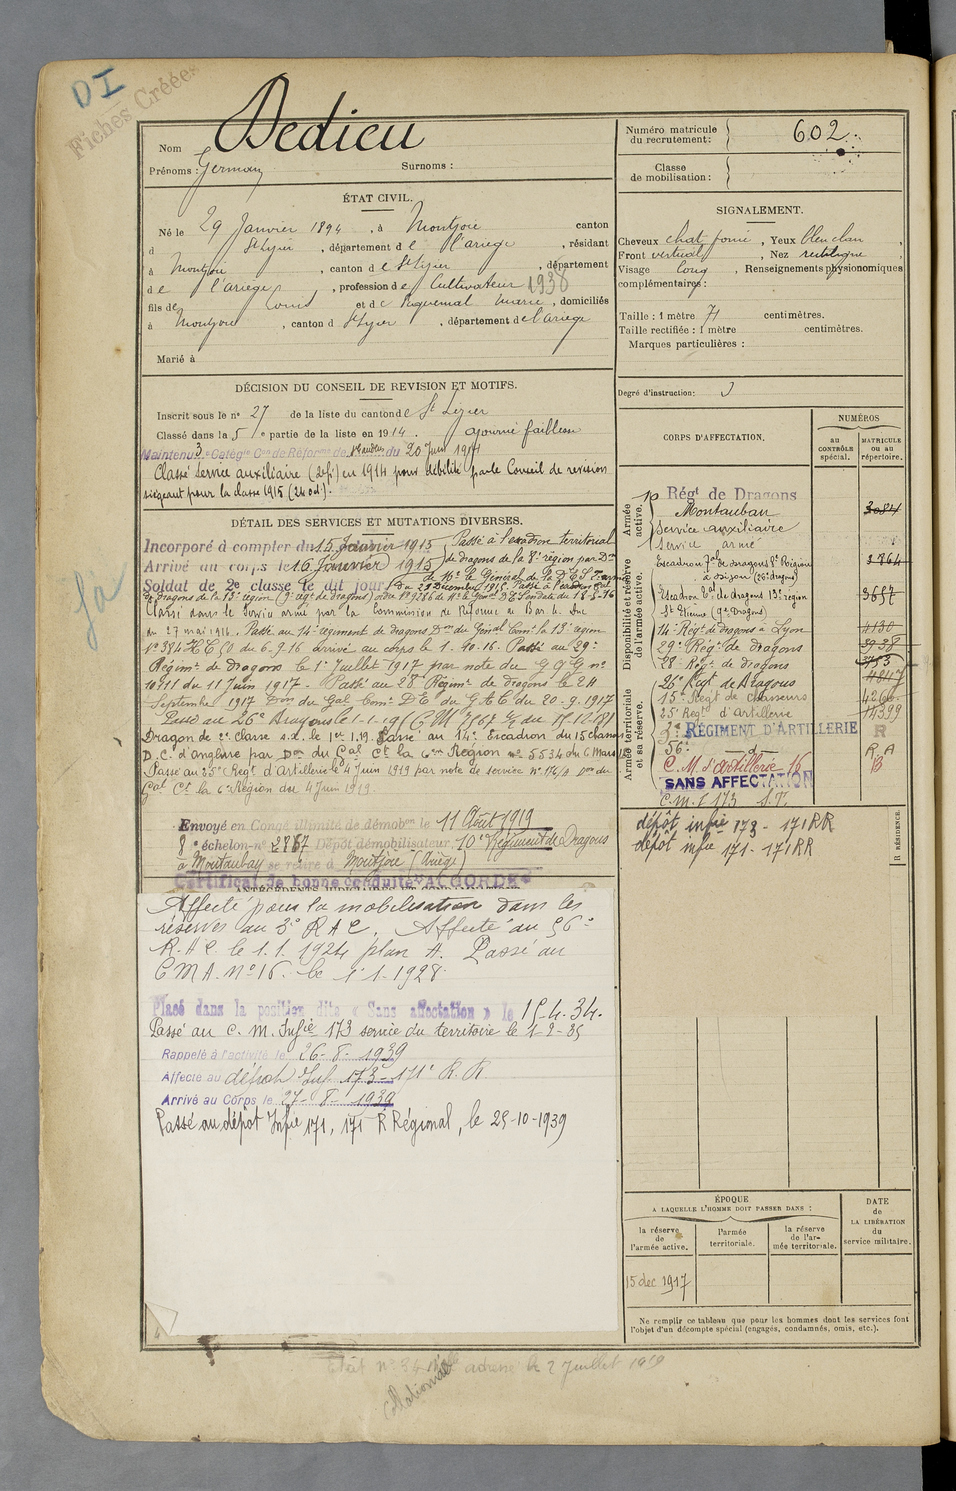 DI
Fiches Créées
Nom Dedieu
Prénoms : Germain Surnoms :
Numéro matricule du recrutement : 602.
Classe de mobilisation :
ÉTAT CIVIL.
Né le 29 Janvier 1894, à Montjoie canton
d St Lizier, département de l'ariege, résidant
à Montjoie, canton de St Lizier, département
de l'ariege, profession de Cultivateur 1938
fils de Louis et de Riquemal Marie, domiciliés
à Montjoie, canton d St Lizier, département de l'ariege
Marié à
SIGNALEMENT.
Cheveux chat. foncé, Yeux bleu clair,
Front vertical, Nez rectiligne
Visage long, Renseignements physionomiques
complémentaires :
Taille : 1 mètre 71 centimètres.
Taille rectifiée : 1 mètre centimètres.
Marques particulières :
Degré d'instruction : 3
DÉCISION DU CONSEIL DE REVISION ET MOTIFS.
Inscrit sous le nº 27 de la liste du canton de St Lizier
Classé dans la 5e partie de la liste en 1914. ajourné faiblesse
Maintenu 3e Catégie Con de Réforme de du 20 Juin 1914
Classé Service auxiliaire (2e fi) en 1914 pour débilité par le Conseil de revision
siégeant pour la classe 1915 (24 oct).
DÉTAIL DES SERVICES ET MUTATIONS DIVERSES.
Incorporé à compter du 15 Janvier 1915 Passé à l'escadron territorial
Arrivé au corps le 16 Janvier 1915 de dragons de la 8e région par Don
de Mr le Général de la
Soldat de 2e classe le dit jour du 29 Décembre 1915. Passé à l'escadron
de dragons de la 13e région (9e regt de dragons) ordre Nº 9286 de Mr le en date du 18-5-16
Classé dans le Service armé par la Commission de Réforme de Bar le Duc
du 27 mai 1916. Passé au 14e régiment de dragons Don du Génal Comt la 13e région
Nº 384 du 6.9.16 arrivé au corps le 1.10.16. Passé au 29e
Régimt de Dragons le 1er Juillet 1917 par note du G Q G nº
10911 du 11 Juin 1917 - Passé au 28e Régimt de Dragons le 24
Septembre 1917 Don du Gal Comt D E du G A C du 20-9-1917
Passé au 26e Dragons le 1-1-19
Dragon de 2e Classe s.d. le 1er 1.19. Passé au 14e Escadron du 15 chass
D.C. d'Angleur par Don du Gal Ct la 6me Région nº 5534 du 6 Mars 19
Passé au 25e Regt d'Artillerie le 4 Juin 1919 par note de service Nº 176/D Don du
Gal Ct la 6e Région du 4 Juin 1919.
Envoyé en Congé illimité de démobon le 11 Août 1919
8e échelon nº 2867 Dépôt démobilisateur 10e Régiment de Dragons
à Montauban se retire à Montjoie (Ariège)
Certificat de bonne conduite "ACCORDÉ"
ANTÉCÉDENTS JUDICIAIRES ET CONDAMNATIONS
Affecté pour la mobilisation dans les
réserves au 3e R A C. Affecté au 56e
R.A.C. le 1.1.1924 plan A. Passé au
C M A. Nº 16. le 1-1-1928.
Placé dans la position dite « Sans affectation » le 15-4-34.
Passé au C. M. Infie 173 service du territoire le 1-2-35
Rappelé à l'activité le 26-8-1939
Affecté au dépôt Inf. 173 - 171e R. R
Arrivé au Corps le 27-8-1939
Passé au dépôt Infie 171, 171 R Régional, le 25-10-1939
CORPS D'AFFECTATION.
NUMÉROS
au CONTRÔLE spécial.
MATRICULE ou au répertoire.
Armée active.
Régt de Dragons
Montauban 3084
Service auxiliaire
Service armé
Disponibilité et réserve de l'armée active.
Escadron de dragons 8e Région 1764
à Dijon (26e dragons)
Escadron de dragons 13e région 3657
St Etienne (9e Dragons)
14e Régt de dragons à Lyon 4130
29e Régt de Dragons 3938
28e Régt de Dragons 3753
26e Regt de Dragons 4847
15e Regt de chasseurs
25e Regt d'artillerie 14399
Armée territoriale et sa réserve.
3e RÉGIMENT D'ARTILLERIE R
56e -d- R.A
C. M. d'artillerie 16 B
SANS AFFECTATION
C.m. I 173 S.T.
dépôt infie 173 - 171 RR
dépôt infie 171 - 171 RR
R RÉSIDENCE.
ÉPOQUE
A LAQUELLE L'HOMME DOIT PASSER DANS :
la réserve de l'armée active.
l'armée territoriale.
la réserve de l'armée territoriale.
DATE de LA LIBÉRATION du service militaire.
15 dec 1917
Ne remplir ce tableau que pour les hommes dont les services font
l'objet d'un décompte spécial (engagés, condamnés, omis, etc.).
Etat nº 34 adressé le 2 Juillet 1919
collationné